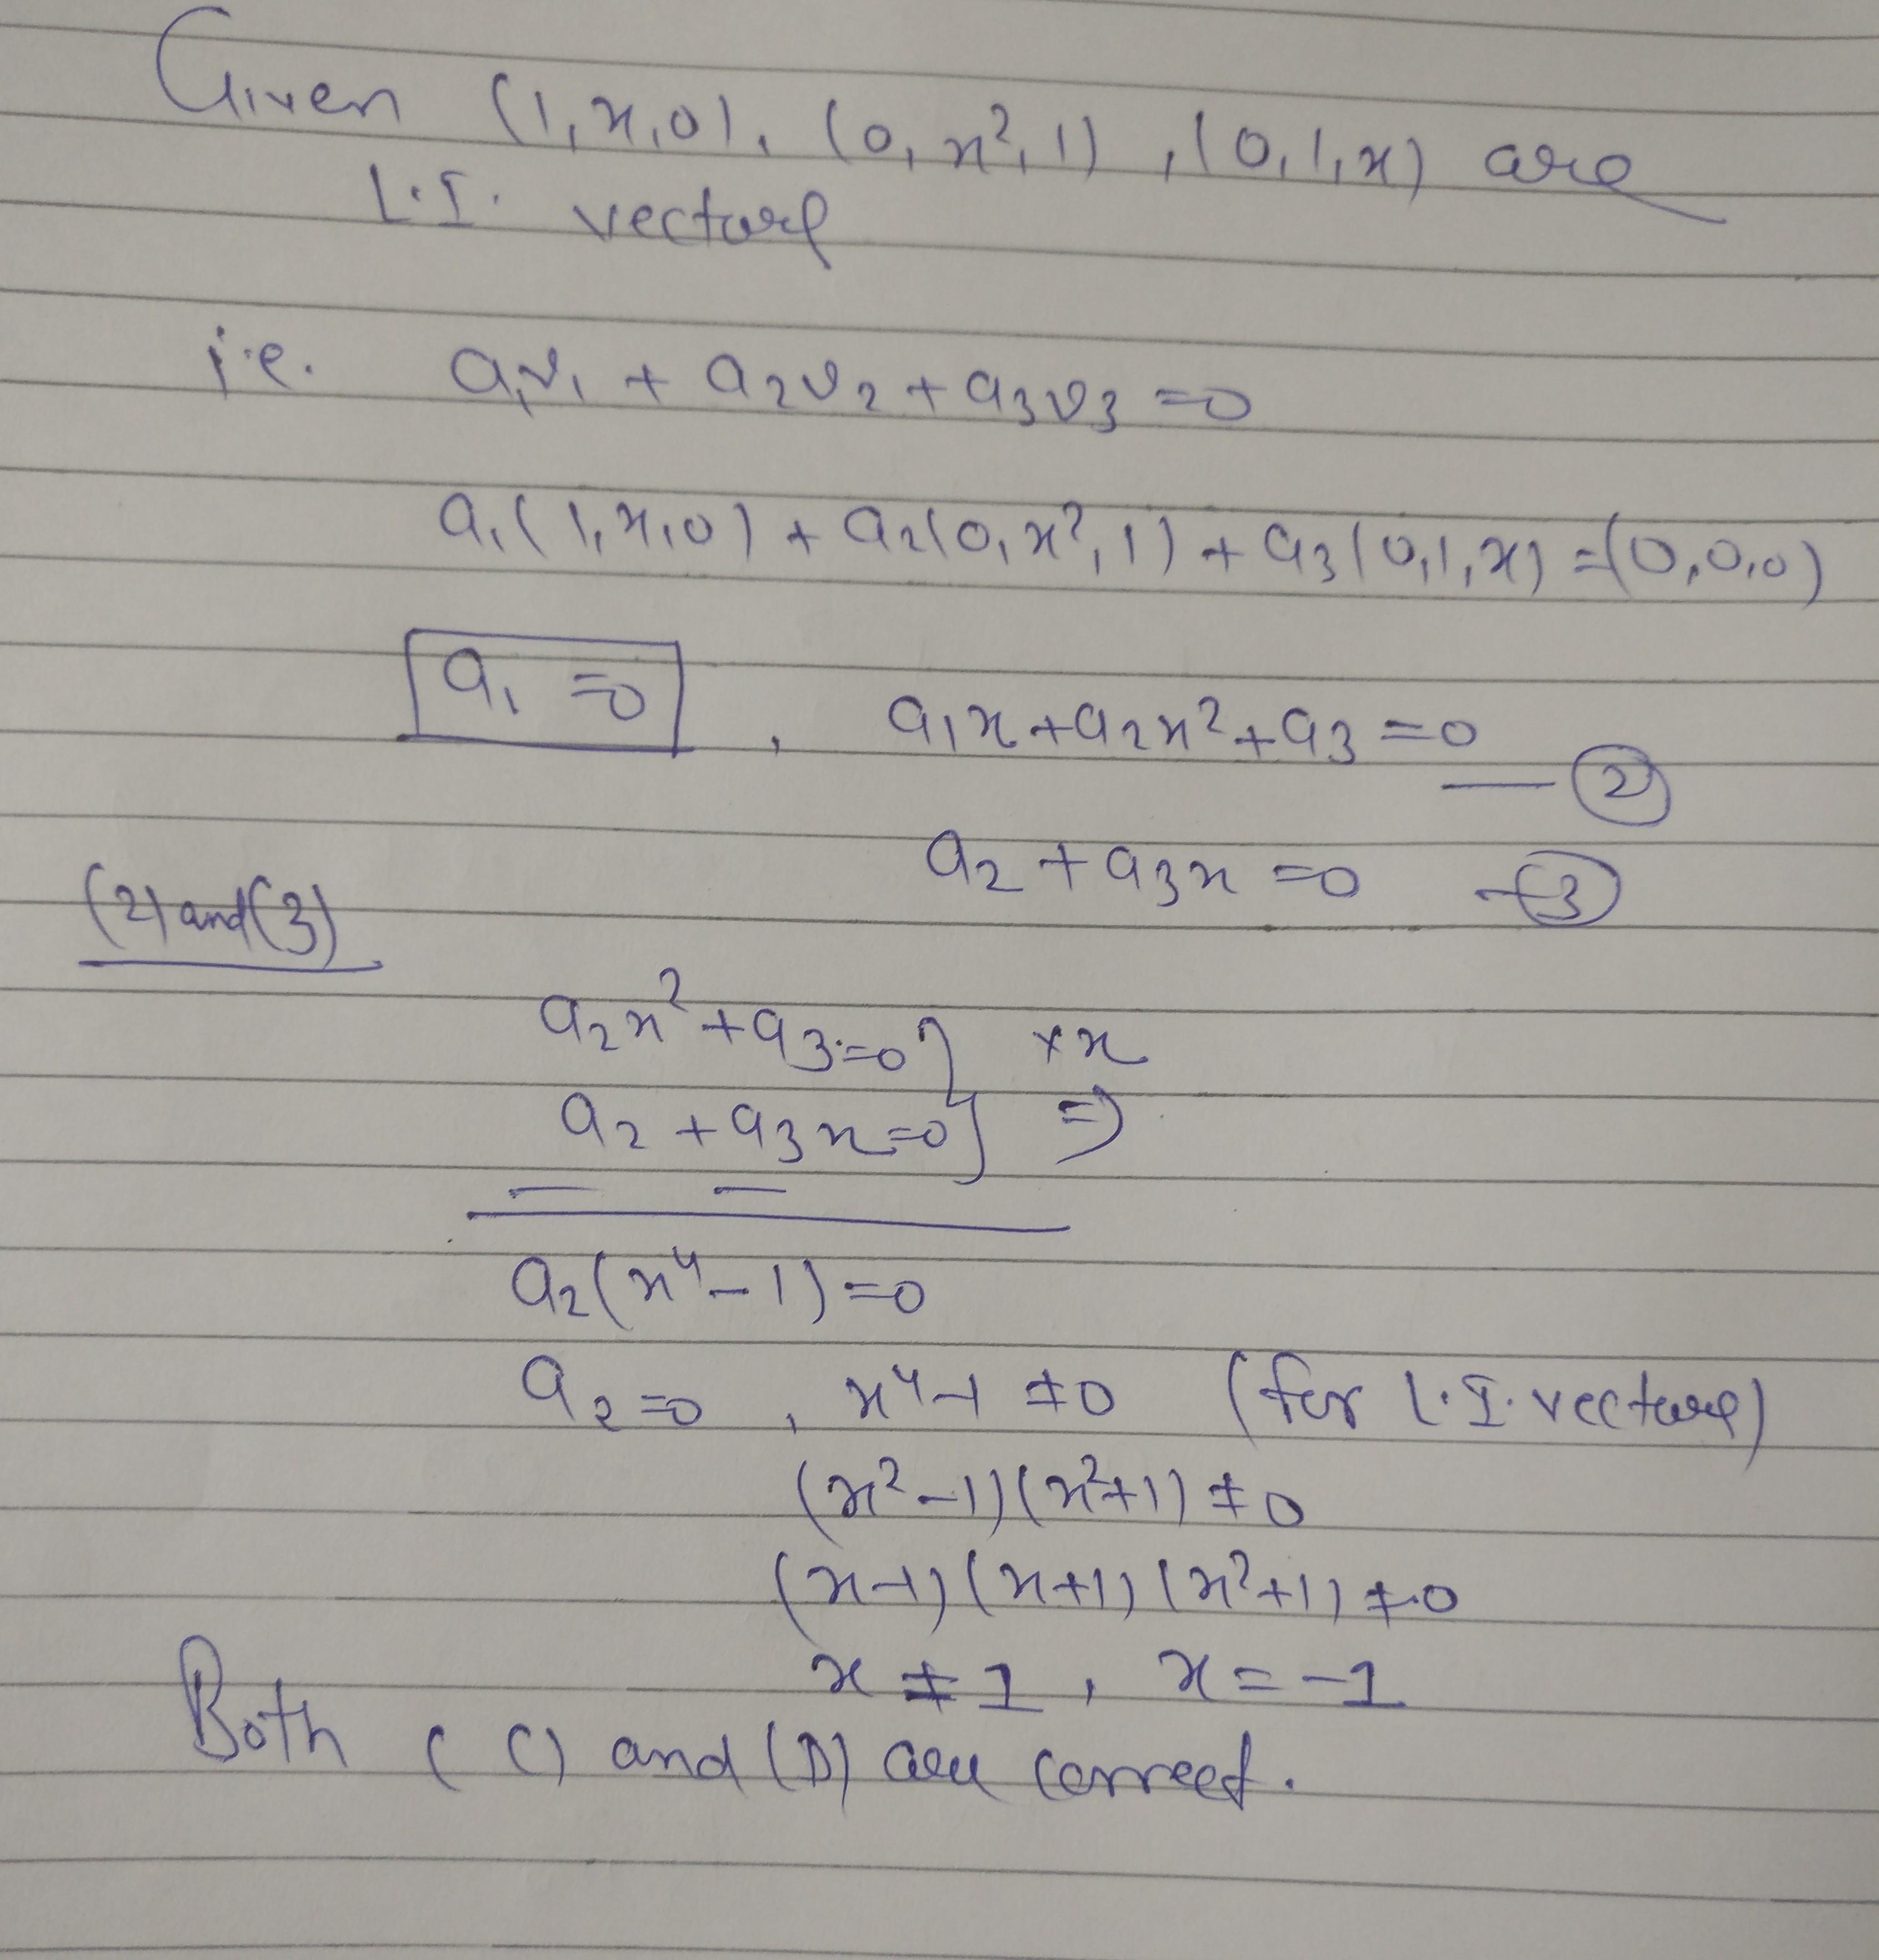 Given (1, x, 0), (0, x², 1), (0, 1, x) are
L.I. vectors
i.e. a₁v₁ + a₂v₂ + a₃v₃ =0
a₁(1, x, 0) + a₂(0, x², 1) + a₃(0, 1, x) = (0, 0, 0)
a₁ =0 , a₁x + a₂x² + a₃ =0 — ②
a₂ + a₃x =0 — ③
(2) and (3)
a₂x² + a₃ =0 } × x
a₂ + a₃x =0 } ⇒
a₂(x⁴ - 1) =0
a₂ =0 , x⁴-1 ≠0 (for L.I. vectors)
(x² - 1)(x²+1) ≠ 0
(x-1)(x+1)(x²+1) ≠ 0
x ≠ 1 , x = -1
Both (C) and (D) are correct.